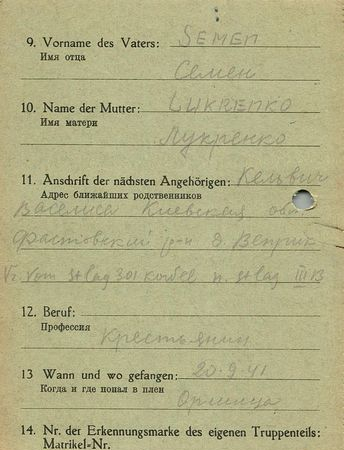 9. Vorname des Vaters: SEMEN
Имя отца
Семен
10. Name der Mutter: LUKRENKO
Имя матери
Лукренко
11. Anschrift der nächsten Angehörigen: Кельвич
Адрес ближайших родственников
Василиса Киевская об
Фастовский р-н д. Веприк
V. Vom Stlag 301 Kowel n. Stlag III B
12. Beruf:
Профессия
Крестьянин
13 Wann und wo gefangen: 20.9.41
Когда и где попал в плен
Оржица
14. Nr. der Erkennungsmarke des eigenen Truppenteils:
Matrikel-Nr.